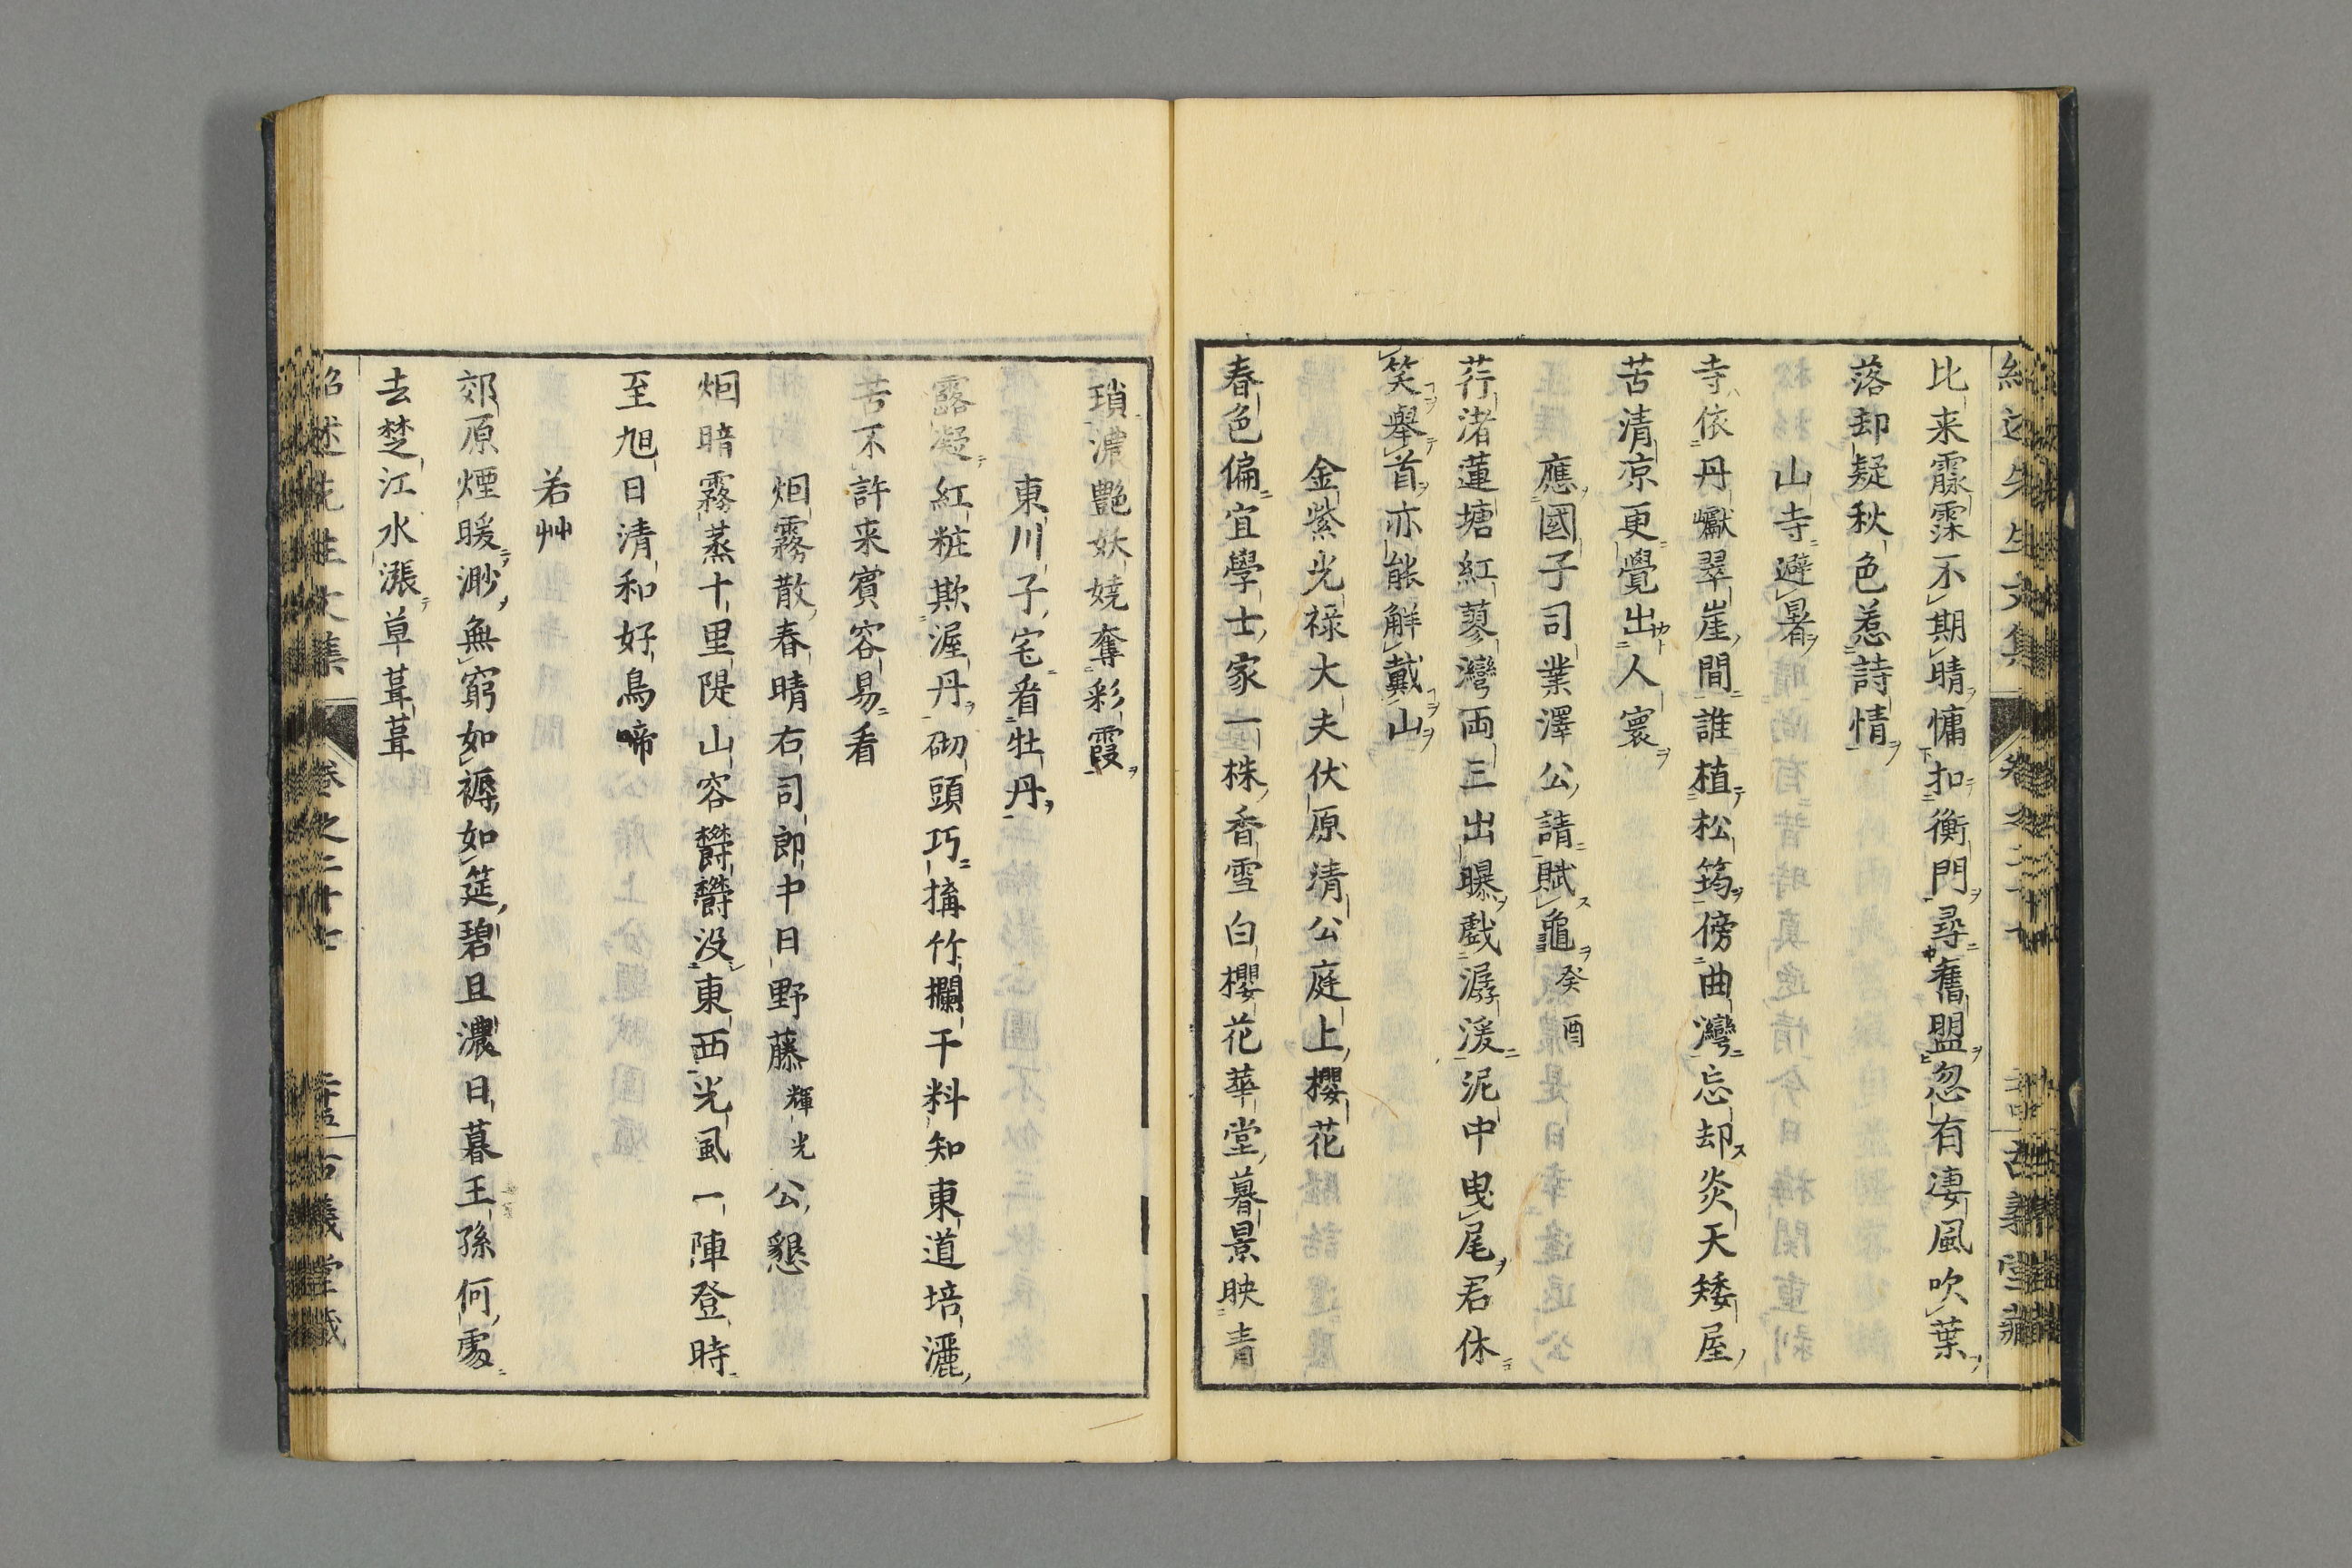 比来霡霂不期晴慵扣衡門尋舊盟忽有凄風吹葉
落却疑秋色惹詩情
山寺避暑
寺依丹巘翠崖間誰植松筠傍曲灣忘却炎天矮屋
苦清凉更覺出人寰
應國子司業澤公請賦龜癸酉
荇渚蓮塘紅蓼灣両三出曝戯潺湲泥中曳尾君休
笑舉首亦能解戴山
金紫光禄大夫伏原清公庭上櫻花
春色偏宜學士家一株香雪白櫻花華堂暮景映青
瑣濃艷妖嬈奪彩霞
東川子宅看牡丹
露凝紅粧欺渥丹砌頭巧搆竹欄干料知東道培灑
苦不許来賓容易看
烟霧散春晴右司郎中日野藤輝光公懇
烟暗霧蒸十里隄山容欝欝没東西光風一陣登時
至旭日清和好鳥啼
若艸
郊原煙暖渺無窮如褥如筵碧且濃日暮王孫何處
去楚江水漲草葺葺
紹述先生文集
卷之二十七
古義堂藏